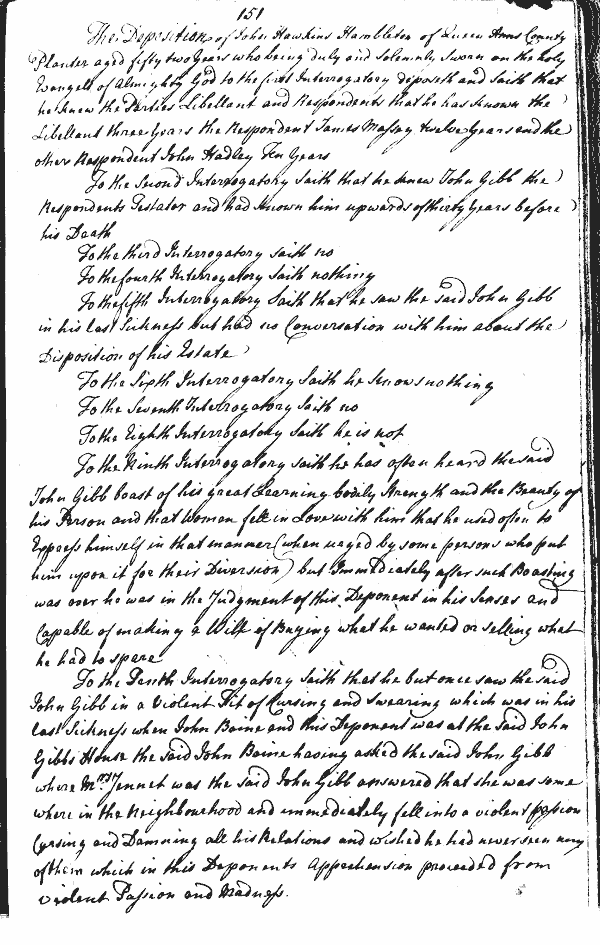 151
The Deposition of John Hawkins Hambleton of Queen Anns County
Planter aged fifty two Years who being duly and Solemnly Sworn on the holy
Evangels of Almighty God to the first Interrogatory deposeth and saith that
he knew the Parties Libellant and Respondents that he has known the
Libellant three Years the Respondent James Massey twelve Years and the
other Respondent John Hadley Ten Years
To the Second Interrogatory saith that he knew John Gibb the
Respondents Testator and had known him upwards of thirty Years before
his Death
To the third Interrogatory saith no
To the fourth Interrogatory saith nothing
To the fifth Interrogatory Saith that he saw the said John Gibb
in his last Sickness but had no Conversation with him about the
Disposition of his Estate
To the Sixth Interrogatory Saith he knows nothing
To the Seventh Interrogatory Saith no
To the Eighth Interrogatory saith he is not
To the Ninth Interrogatory saith he has often heard the said
John Gibb boast of his great Learning bodily Strength and the Beauty of
his Person and that Women fell in Love with him that he used often to
Express himself in that manner (when urged by some persons who put
him upon it for their Diversion) but Immediately after such Boasting
was over he was in the Judgment of this Deponent in his Senses and
Capable of making a Will of Buying what he wanted or selling what
he had to spare
To the Tenth Interrogatory saith that he but once saw the said
John Gibb in a Violent Fit of Cursing and Swearing which was in his
last Sickness when John Baine and this Deponent was at the said John
Gibbs House the said John Baine having asked the said John Gibb
where Mrs. Jennet was the said John Gibb answered that she was some
where in the Neighbourhood and immediately fell into a violent passion
Cursing and Damning all his Relations and wished he had never seen any
of them which in this Deponents Apprehension proceeded from
violent Passion and Madness.